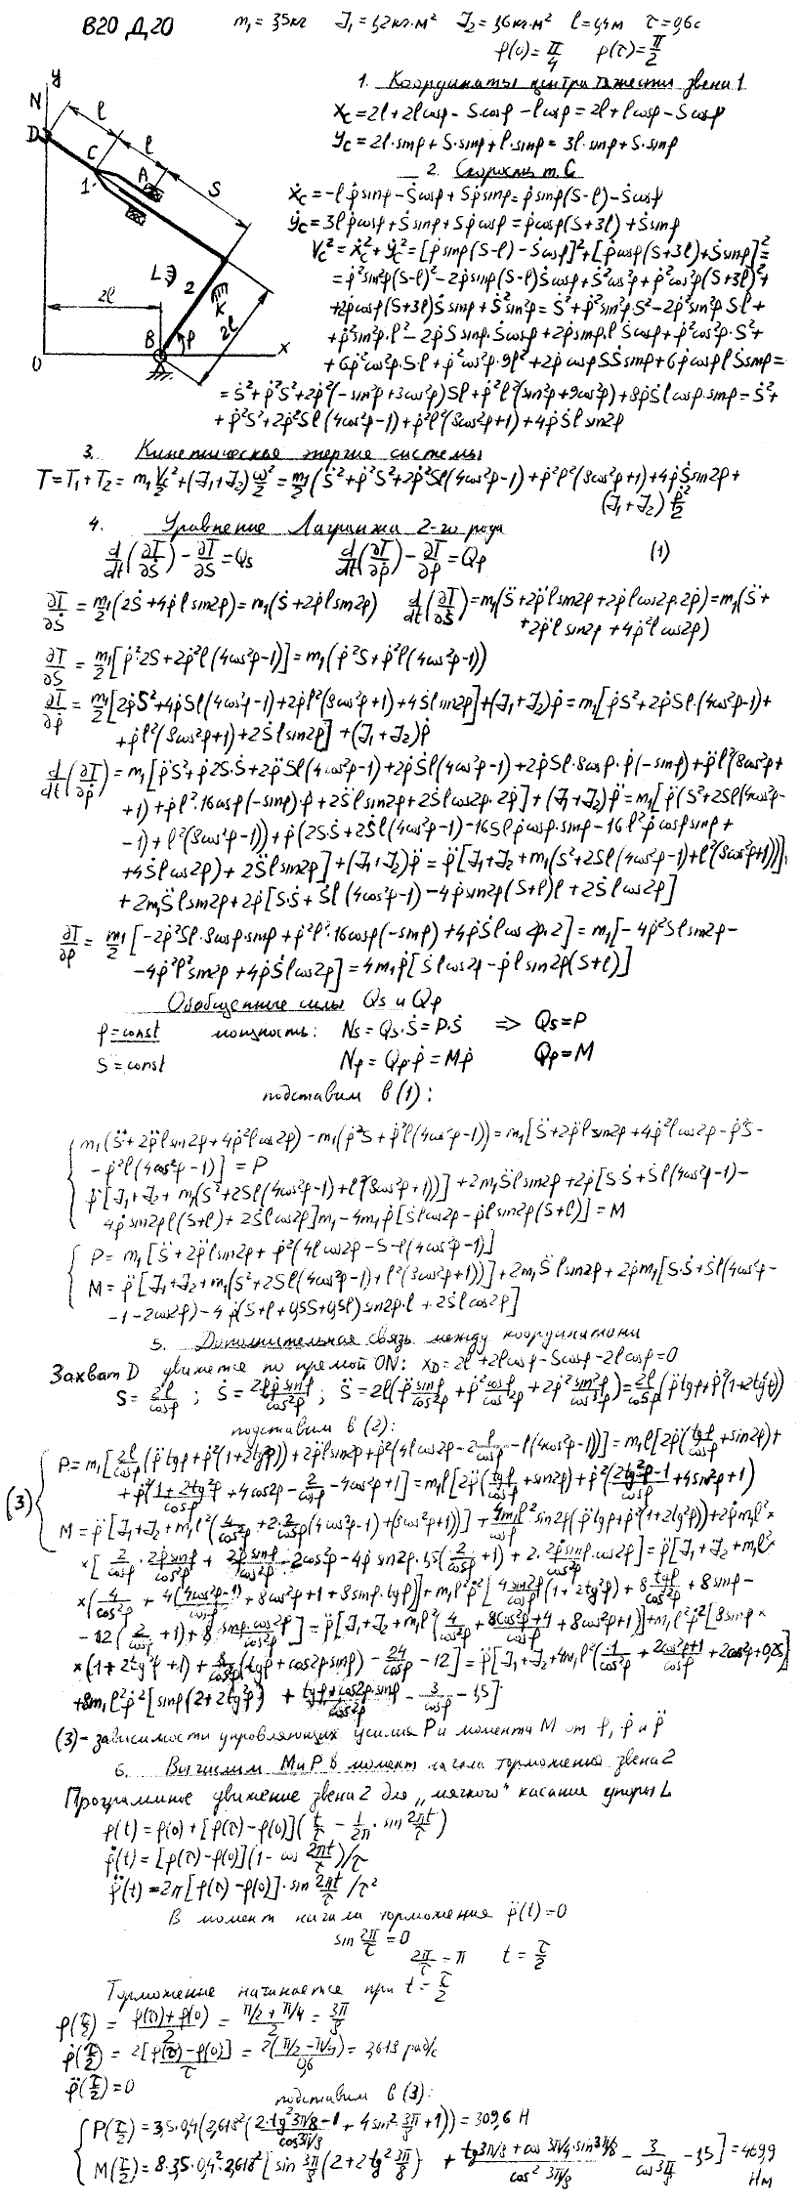 В20 Д20
m₁ = 3,5кг J₁ = 1,2кг·м² J₂ = 1,6кг·м² l = 0,4м τ = 0,6с
φ(0) = π/4 φ(τ) = π/2
y
N
D
C
1
A
l
l
S
L
2
K
2l
2l
B
φ
O
x
1. Координаты центра тяжести звена 1
Xc = 2l + 2l cosφ - S cosφ - l cosφ = 2l + l cosφ - S cosφ
Yc = 2l·sinφ + S·sinφ + l·sinφ = 3l·sinφ + S·sinφ
2. Скорость т. C
Ẋc = -l·φ̇ sinφ - Ṡ cosφ + Sφ̇ sinφ = φ̇ sinφ(S-l) - Ṡ cosφ
Ẏc = 3lφ̇ cosφ + Ṡ sinφ + Sφ̇ cosφ = φ̇ cosφ(S+3l) + Ṡ sinφ
Vc² = Ẋc² + Ẏc² = [φ̇ sinφ(S-l) - Ṡ cosφ]² + [φ̇ cosφ(S+3l) + Ṡ sinφ]² =
= φ̇² sin²φ(S-l)² - 2φ̇ sinφ(S-l)Ṡ cosφ + Ṡ² cos²φ + φ̇² cos²φ(S+3l)² +
+ 2φ̇ cosφ(S+3l)Ṡ sinφ + Ṡ² sin²φ = Ṡ² + φ̇² sin²φ·S² - 2φ̇² sin²φ Sl +
+ φ̇² sin²φ·l² - 2φ̇ S sinφ·Ṡ cosφ + 2φ̇ sinφ·l Ṡ cosφ + φ̇² cos²φ·S² +
+ 6φ̇² cos²φ·S·l + φ̇² cos²φ·9l² + 2φ̇ cosφ SṠ sinφ + 6φ̇ cosφ l Ṡ sinφ =
= Ṡ² + φ̇²S² + 2φ̇²(-sin²φ + 3cos²φ)Sl + φ̇²l²(sin²φ + 9cos²φ) + 8φ̇Ṡl cosφ·sinφ = Ṡ² +
+ φ̇²S² + 2φ̇²Sl(4cos²φ-1) + φ̇²l²(8cos²φ+1) + 4φ̇Ṡl sin2φ
3. Кинетическая энергия системы
T = T₁ + T₂ = m₁ Vc²/2 + (J₁+J₂) ω²/2 = m₁/2 (Ṡ² + φ̇²S² + 2φ̇²Sl(4cos²φ-1) + φ̇²l²(8cos²φ+1) + 4φ̇Ṡ sin2φ +
(J₁+J₂) φ̇²/2
4. Уравнение Лагранжа 2-го рода
d/dt(∂T/∂Ṡ) - ∂T/∂S = Qs d/dt(∂T/∂φ̇) - ∂T/∂φ = Qφ (1)
∂T/∂Ṡ = m₁/2 (2Ṡ + 4φ̇l sin2φ) = m₁(Ṡ + 2φ̇l sin2φ) d/dt(∂T/∂Ṡ) = m₁(S̈ + 2φ̈l sin2φ + 2φ̇l cos2φ·2φ̇) = m₁(S̈ +
+ 2φ̈l sin2φ + 4φ̇²l cos2φ)
∂T/∂S = m₁/2 [φ̇²·2S + 2φ̇²l(4cos²φ-1)] = m₁(φ̇²S + φ̇²l(4cos²φ-1))
∂T/∂φ̇ = m₁/2 [2φ̇S² + 4φ̇Sl(4cos²φ-1) + 2φ̇l²(8cos²φ+1) + 4Ṡl sin2φ] + (J₁+J₂)φ̇ = m₁[φ̇S² + 2φ̇Sl·(4cos²φ-1) +
+ φ̇l²(8cos²φ+1) + 2Ṡl sin2φ] + (J₁+J₂)φ̇
d/dt(∂T/∂φ̇) = m₁[φ̈S² + φ̇2S·Ṡ + 2φ̈Sl(4cos²φ-1) + 2φ̇Ṡl(4cos²φ-1) + 2φ̇Sl·8cosφ·φ̇(-sinφ) + φ̈l²(8cos²φ +
+ 1) + φ̇l²·16cosφ(-sinφ)·φ̇ + 2S̈l sin2φ + 2Ṡl cos2φ·2φ̇] + (J₁+J₂)φ̈ = m₁[φ̈(S² + 2Sl(4cos²φ -
- 1) + l²(8cos²φ-1)) + φ̇(2SṠ + 2Ṡl(4cos²φ-1) - 16Slφ̇ cosφ·sinφ - 16l²φ̇ cosφ sinφ +
+ 4Ṡl cos2φ) + 2S̈l sin2φ] + (J₁+J₂)φ̈ = φ̈[J₁+J₂+m₁(S² + 2Sl(4cos²φ-1) + l²(8cos²φ+1))]
+ 2m₁S̈l sin2φ + 2φ̇[S·Ṡ + Ṡl(4cos²φ-1) - 4φ̇ sin2φ(S+l)l + 2Ṡl cos2φ]
∂T/∂φ = m₁/2 [-2φ̇²Sl·8cosφ·sinφ + φ̇²l²·16cosφ(-sinφ) + 4φ̇Ṡl cos2φ·2] = m₁[-4φ̇²Sl sin2φ -
- 4φ̇²l² sin2φ + 4φ̇Ṡl cos2φ] = 4m₁φ̇[Ṡl cos2φ - φ̇l sin2φ(S+l)]
Обобщенные силы Qs и Qφ
φ = const мощность: Ns = Qs·Ṡ = P·Ṡ => Qs = P
S = const Nφ = Qφ·φ̇ = Mφ̇ Qφ = M
подставим в (1):
m₁(S̈ + 2φ̈l sin2φ + 4φ̇²l cos2φ) - m₁(φ̇²S + φ̇²l(4cos²φ-1)) = m₁[S̈ + 2φ̈l sin2φ + 4φ̇²l cos2φ - φ̇²S -
- φ̇²l(4cos²φ-1)] = P
φ̈[J₁+J₂ + m₁(S² + 2Sl(4cos²φ-1) + l²(8cos²φ+1))] + 2m₁S̈l sin2φ + 2φ̇[S·Ṡ + Ṡl(4cos²φ-1) -
4φ̇ sin2φ l(S+l) + 2Ṡl cos2φ]m₁ - 4m₁φ̇[Ṡl cos2φ - φ̇l sin2φ(S+l)] = M
P = m₁[S̈ + 2φ̈l sin2φ + φ̇²(4l cos2φ - S - l(4cos²φ-1)]
M = φ̈[J₁+J₂+m₁(S² + 2Sl(4cos²φ-1) + l²(8cos²φ+1))] + 2m₁S̈l sin2φ + 2φ̇m₁[S·Ṡ + Ṡl(4cos²φ -
- 1 - 2cos2φ) - 4φ̇(S+l+0,5S+0,5l) sin2φ·l + 2Ṡl cos2φ]
5. Дополнительная связь между координатами
Захват D движется по прямой ON: X_D = 2l + 2l cosφ - S cosφ - 2l cosφ = 0
S = 2l/cosφ ; Ṡ = 2lφ̇ sinφ/cos²φ ; S̈ = 2l(φ̈ sinφ/cos²φ + φ̇² cosφ/cos²φ + 2φ̇² sin²φ/cos³φ) = 2l/cosφ (φ̈ tgφ + φ̇²(1+2tg²φ))
подставим в (2):
(3) P = m₁[2l/cosφ (φ̈ tgφ + φ̇²(1+2tg²φ)) + 2φ̈l sin2φ + φ̇²(4l cos2φ - 2 l/cosφ - l(4cos²φ-1))] = m₁l[2φ̈(tgφ/cosφ + sin2φ) +
+ φ̇²(1+2tg²φ/cosφ + 4cos2φ - 2/cosφ - 4cos²φ + 1] = m₁l[2φ̈(tgφ/cosφ + sin2φ) + φ̇²(2tg²φ-1/cosφ + 4sin²φ + 1)
M = φ̈[J₁+J₂+m₁l²(4/cos²φ + 2·2/cosφ(4cos²φ-1) + (8cos²φ+1))] + 4m₁l²/cosφ sin2φ(φ̈ tgφ + φ̇²(1+2tg²φ)) + 2φ̇m₁l² ×
× (4/cos²φ + 4(4cos²φ-1)/cosφ + 8cos²φ + 1 + 8sinφ·tgφ)] + m₁l²φ̇²[4sin2φ/cosφ (1+2tg²φ) + 8 tgφ/cos²φ + 8sinφ -
× (1+2tg²φ+1) + 8/cos²φ (tgφ + cos2φ sinφ) - 24/cosφ - 12] = φ̈[J₁+J₂+4m₁l²(1/cos²φ + 2cos²φ+1/cosφ + 2cos²φ + 0,25)]
+ 8m₁l²φ̇²[sinφ(2+2tg²φ) + tgφ+cos2φ sinφ/cos²φ - 3/cosφ - 1,5]
(3) - зависимости управляющих усилия P и момента M от φ, φ̇ и φ̈
6. Вычислим M и P в момент начала торможения звена 2
Программное движение звена 2 для „мягкого" касания упоры L
φ(t) = φ(0) + [φ(τ) - φ(0)](t/τ - 1/2π · sin 2πt/τ)
φ̇(t) = [φ(τ) - φ(0)](1 - cos 2πt/τ)/τ
φ̈(t) = 2π[φ(τ) - φ(0)]·sin 2πt/τ /τ²
В момент начала торможения φ̈(t) = 0
sin 2π/τ = 0
2π/τ = π t = τ/2
Торможение начинается при t = τ/2
φ(τ/2) = φ(τ)+φ(0)/2 = π/2+π/4/2 = 3π/8
φ̇(τ/2) = 2[φ(τ)-φ(0)]/τ = 2(π/2-π/4)/0,6 = 2,618 рад/с
φ̈(τ/2) = 0
подставим в (3):
P(τ/2) = 3,5·0,4(2,618²(2·tg²3π/8-1/cos3π/8 + 4sin² 3π/8 + 1)) = 309,6 Н
M(τ/2) = 8·3,5·0,4²·2,618²[sin 3π/8 (2+2tg² 3π/8) + tg3π/8+cos 3π/4·sin3π/8/cos² 3π/8 - 3/cos 3π/8 - 1,5] = 469,9
Нм